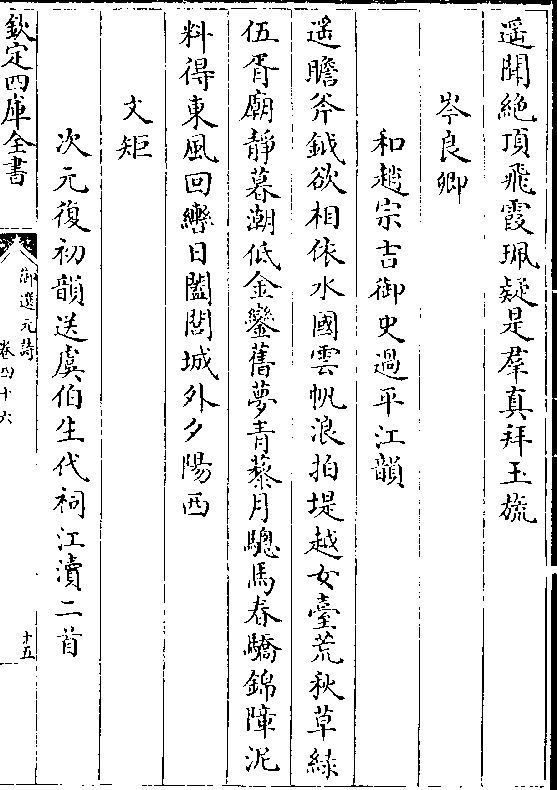 遥聞絶頂飛霞珮疑是羣真拜玉旒
岑良卿
和趙宗吉御史過平江韻
遥瞻斧鉞欲相依水國雲帆浪拍堤越女臺荒秋草緑
伍胥廟靜暮潮低金鑾舊夢青藜月驄馬春驕錦障泥
料得東風回轡日闔閭城外夕陽西
文矩
次元復初韻送虞伯生代祠江瀆二首
欽定四庫全書
御選元詩
卷四十六
十五